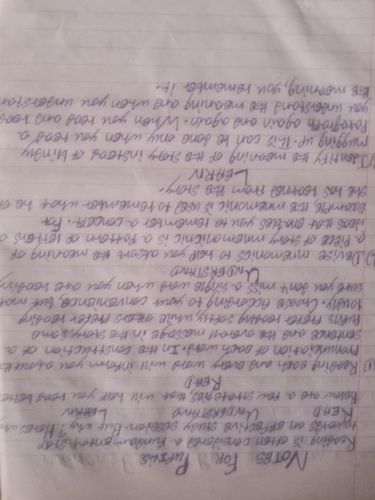 NOTES FOR PUPILS
Reading is often considered a fundamental step
towards an effective study session. But why? Here's why
READ UNDERSTAND LEARN
Below are strategies that will help you read better
READ
Reading each and every word will inform you about the
pronunciation of each word. In the construction of a
sentence and the overall message in the story, some
pupils prefer reading softly while others prefer reading
loudly. Choose according to your convenience but make
sure you don't miss a single word when you are reading
UNDERSTAND
Devise mnemonics to help you absorb the meaning of
a piece of story. mnemonic is a pattern of letters or
ideas that enables you to remember a concept. For
example, the mnemonic is used to remember what he or
she has learned from the story.
LEARN
Identify the meaning of the story instead of blindly
mugging up. This can be done only when you read a
Paragraph again and again. When you read and read
you understand the meaning and when you understand
the meaning, you remember it.